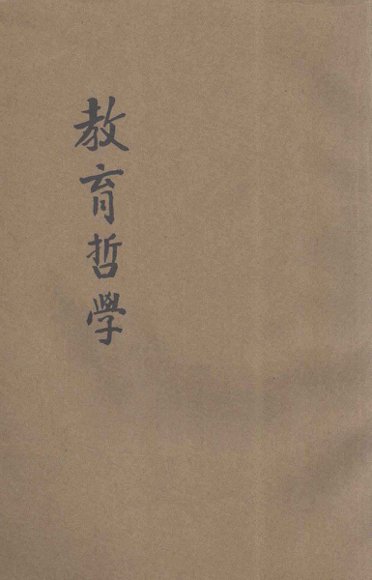 教育哲學